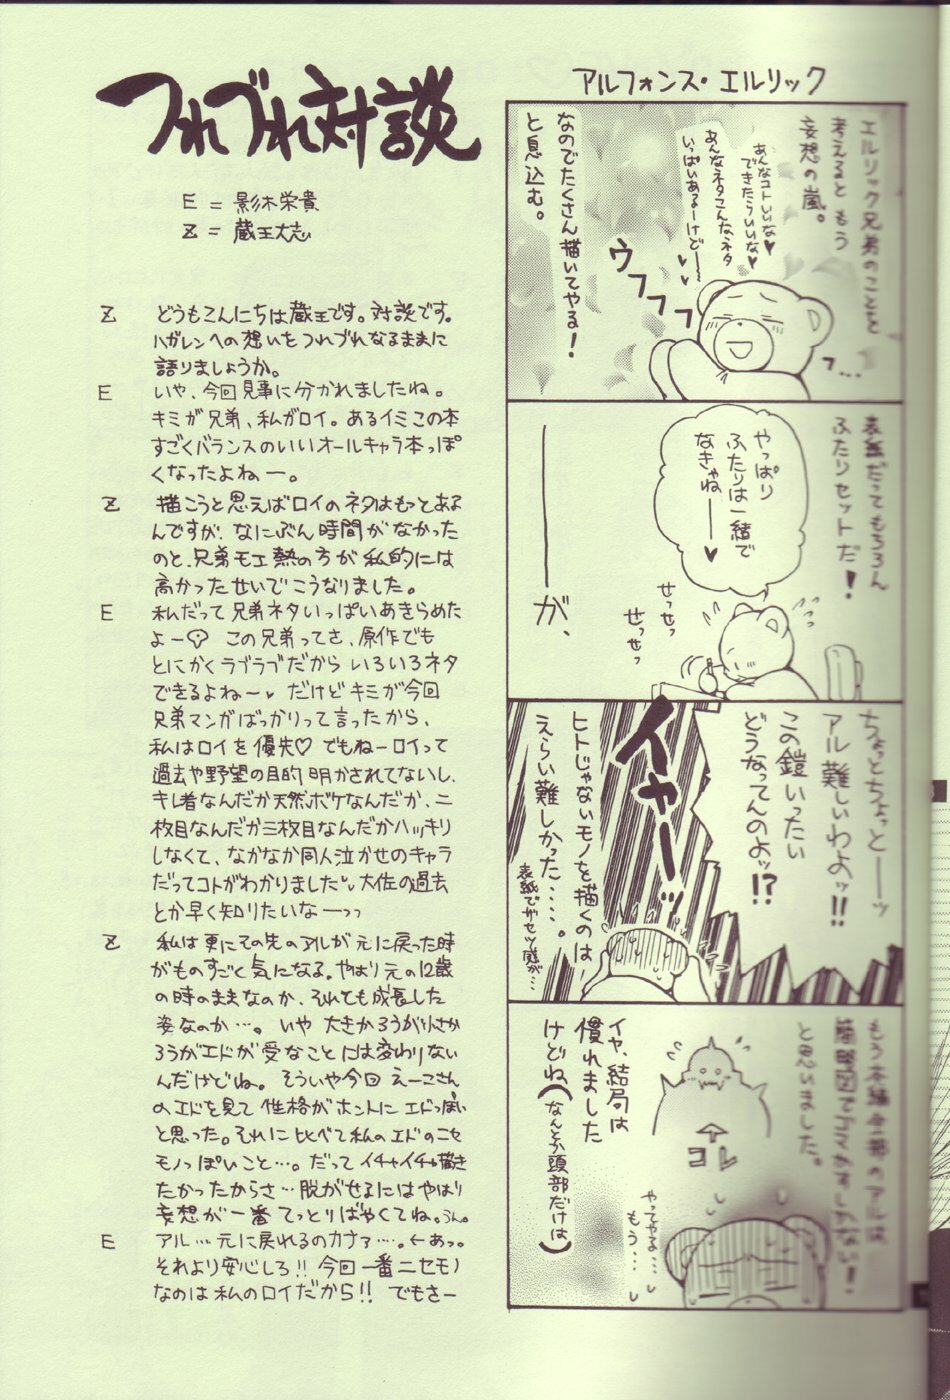 つれづれ対談
E = 影木栄貴
Z = 蔵王大志
Z どうもこんにちは蔵王です。対談です。
ハガレンへの想いをつれづれなるままに
語りましょうか。
E いや、今回見事に分かれましたね。
キミが兄弟、私がロイ。あるイミこの本
すごくバランスのいいオールキャラ本っぽ
くなったよねー。
Z 描こうと思えばロイのネタはもっとある
んですが、なにぶん時間がなかった
のと、兄弟モエ熱の方が私的には
高かったせいでこうなりました。
E 私だって兄弟ネタいっぱいあきらめた
よー この兄弟ってさ、原作でも
とにかくラブラブだから いろいろネタ
できるよねー♥ だけど キミが今回
兄弟マンガばっかりって言ったから、
私はロイを優先♡ でもねーロイって
過去や野望の目的 明かされてないし、
キレ者なんだか天然ボケなんだか、二
枚目なんだか三枚目なんだかハッキリ
しなくて、なかなか同人泣かせのキャラ
だってコトがわかりました 大佐の過去
とか早く知りたいなーっっ
Z 私は更にその先のアルが元に戻った時
がものすごく気になる。やはり元の12歳
の時のままなのか、それとも成長した
姿なのか…。いや 大きかろうが小さか
ろうがエドが受なことには変わりない
んだけどね。そういや今回 えーこさん
のエドを見て 性格がホントに エドっぽい
と思った。それに比べて私のエドのニセ
モノっぽいこと…。だって イチャイチャ描き
たかったからさ…脱がせるにはやはり
妄想が一番 てっとりばやくてね。うん。
E アル…元に戻れるのカナァ…。←あっ。
それより安心しろ!! 今回一番ニセモノ
なのは 私のロイだから!! でもさー
アルフォンス・エルリック
エルリック兄弟のことを
考えると もう
妄想の嵐。
あんなコトいいな♥
できたらいいな♥
あんなネタこんなネタ
いっぱいあるーけどー
なのでたくさん描いてやる!
と息込む。
ウフフフ
フ…
表紙だってもちろん
ふたりセットだ!
やっぱり
ふたりは一緒で
なきゃねー♥
せっせっ
せっせっ
が、
ちょっとちょっとーッ
アル難しいわよッ!!
この鎧いったい
どうなってんのよッ!?
イヤーーッ
ヒトじゃないモノを描くのは
えらい難しかった……。
表紙でザセツ感が…
もう本編全部のアルは
簡略図でゴマかすしかない!
と思いました。
コレ
やってやる…
もう…
イヤ、結局は
慣れました
けどね(なんとか頭部だけは)